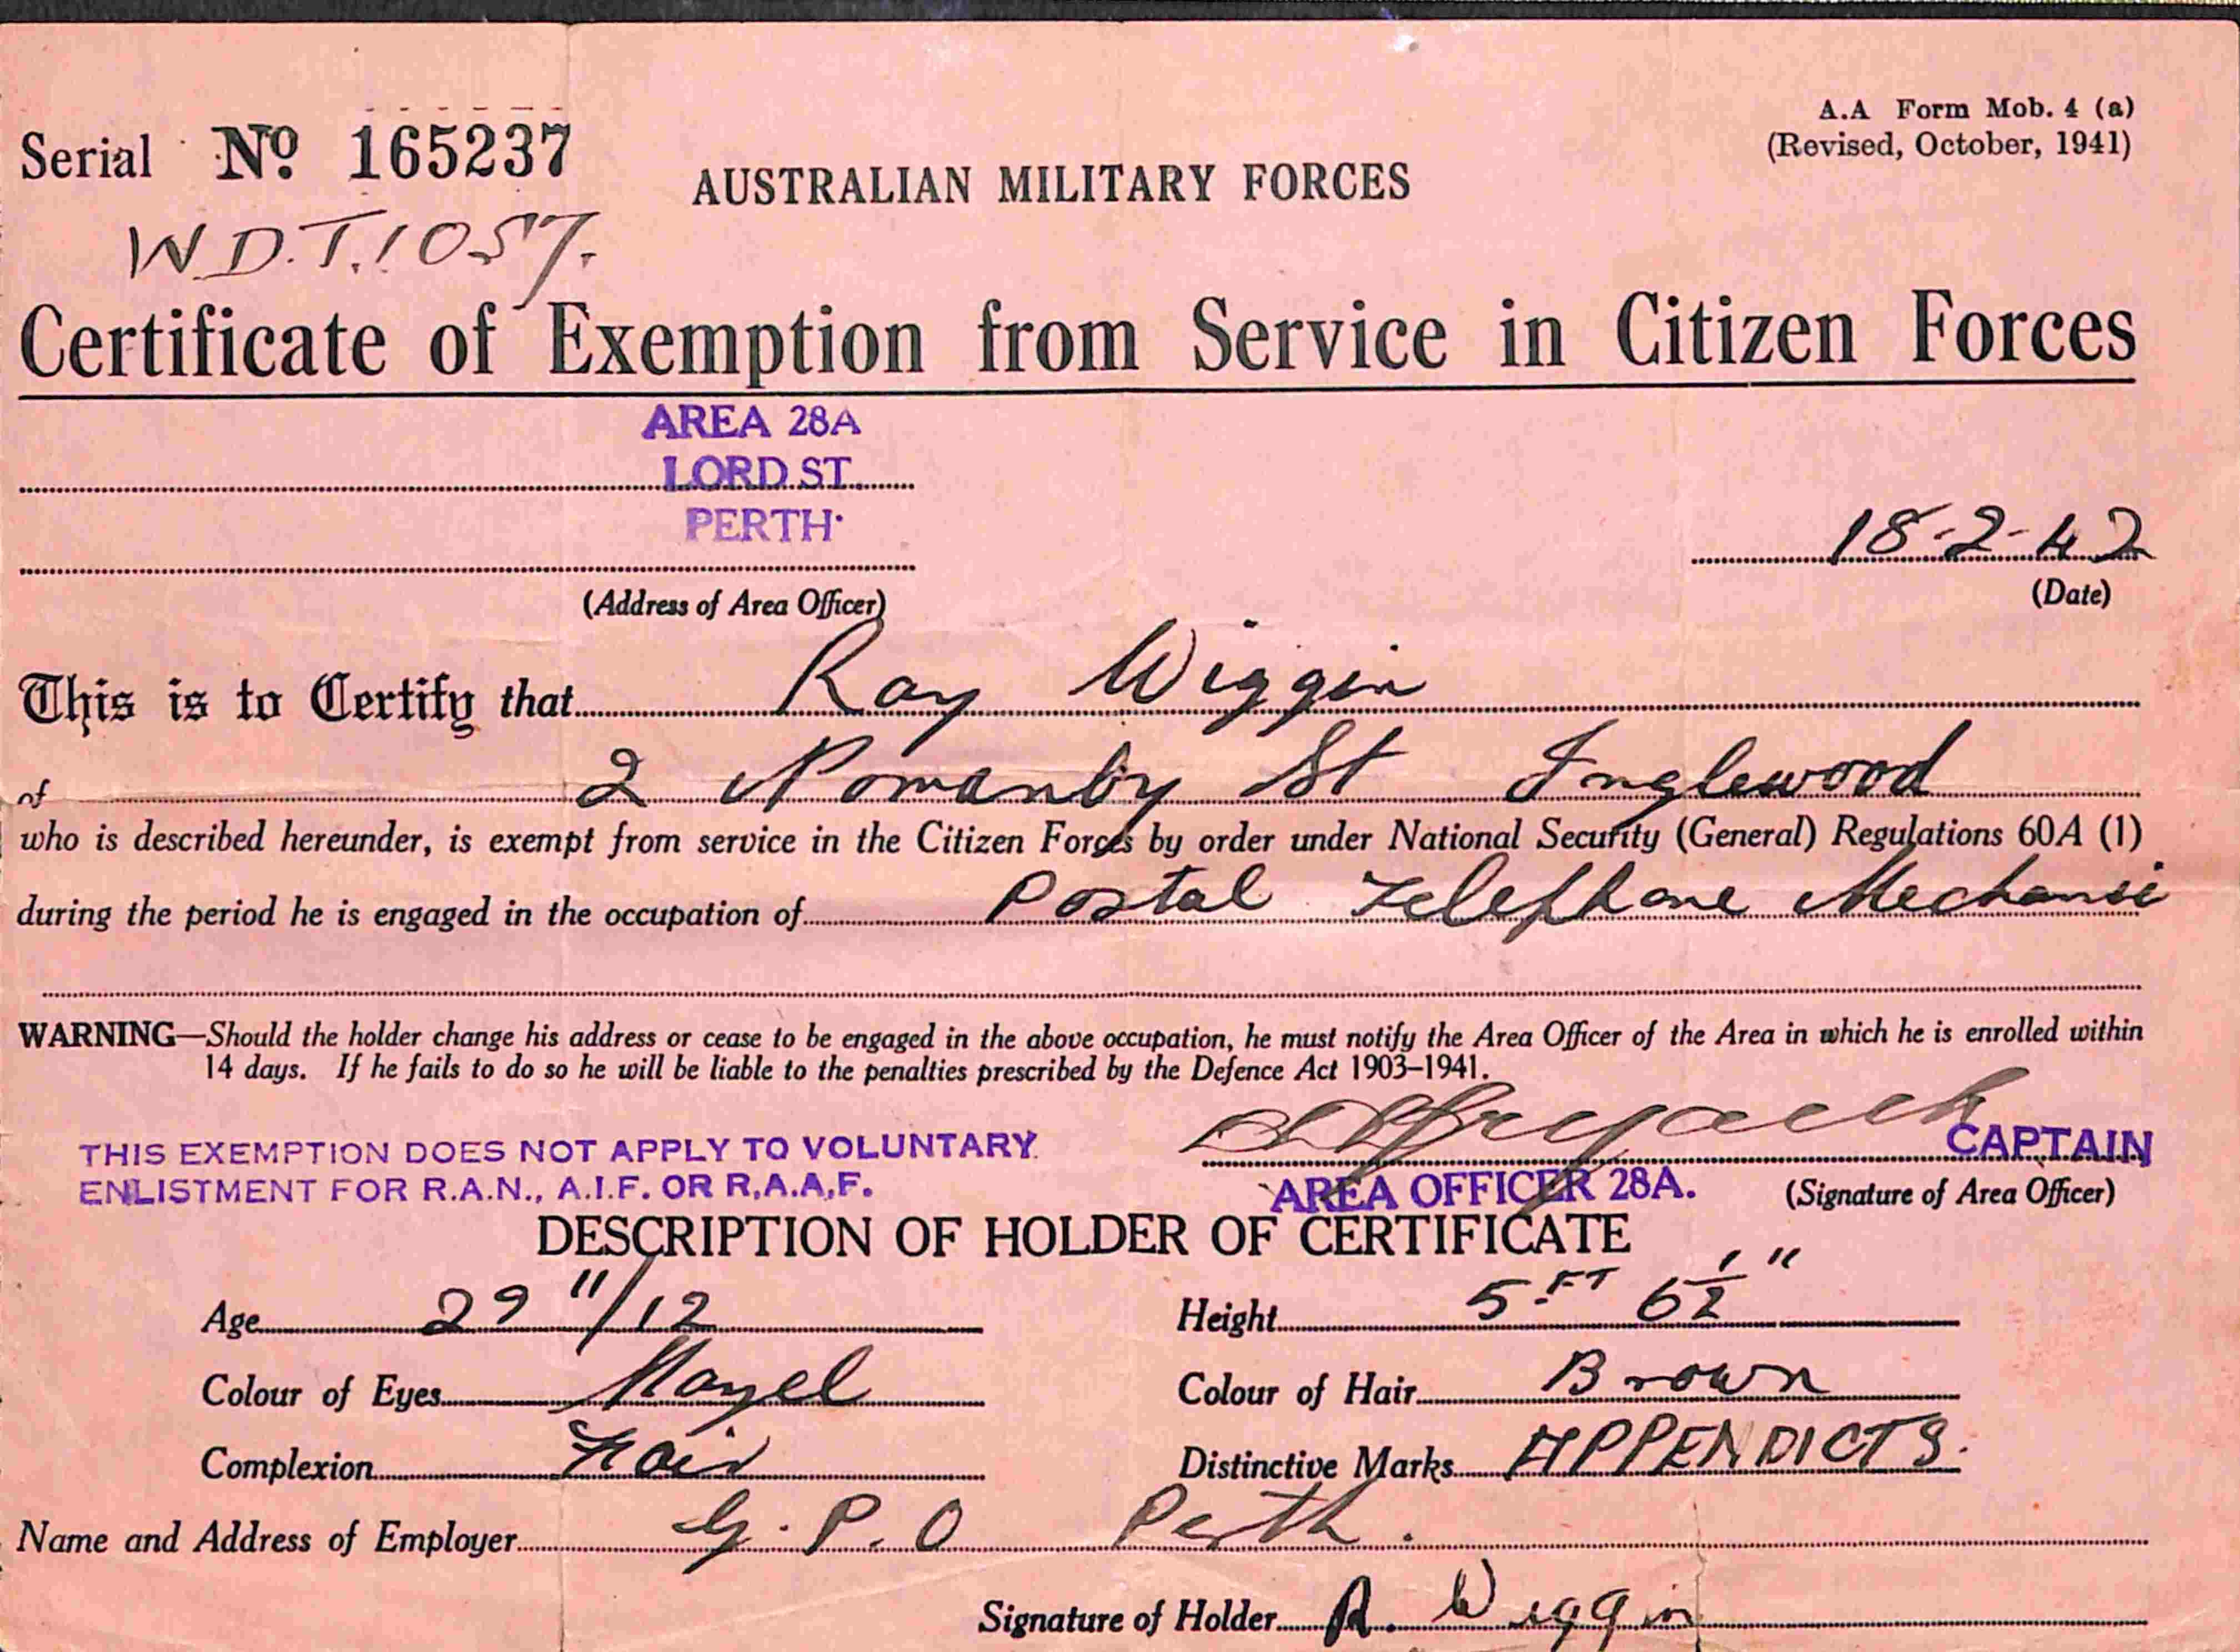 A.A Form Mob. 4 (a)
(Revised, October, 1941)
Serial No 165237
AUSTRALIAN MILITARY FORCES
W.D.T. 1057.
Certificate of Exemption from Service in Citizen Forces
AREA 28A
LORD ST
PERTH
18-2-42
(Address of Area Officer)
(Date)
This is to Certify that Ray Wiggin
of 2 Nomanby St Inglewood
who is described hereunder, is exempt from service in the Citizen Forces by order under National Security (General) Regulations 60A (1)
during the period he is engaged in the occupation of Postal Telephone Mechanic
WARNING—Should the holder change his address or cease to be engaged in the above occupation, he must notify the Area Officer of the Area in which he is enrolled within
14 days. If he fails to do so he will be liable to the penalties prescribed by the Defence Act 1903–1941.
THIS EXEMPTION DOES NOT APPLY TO VOLUNTARY
ENLISTMENT FOR R.A.N., A.I.F. OR R.A.A.F.
CAPTAIN
AREA OFFICER 28A.
(Signature of Area Officer)
DESCRIPTION OF HOLDER OF CERTIFICATE
Age 29 11/12
Height 5 FT 6 1/2"
Colour of Eyes Hazel
Colour of Hair Brown
Complexion Fair
Distinctive Marks APPENDICTS.
Name and Address of Employer G.P.O Perth.
Signature of Holder R. Wiggin